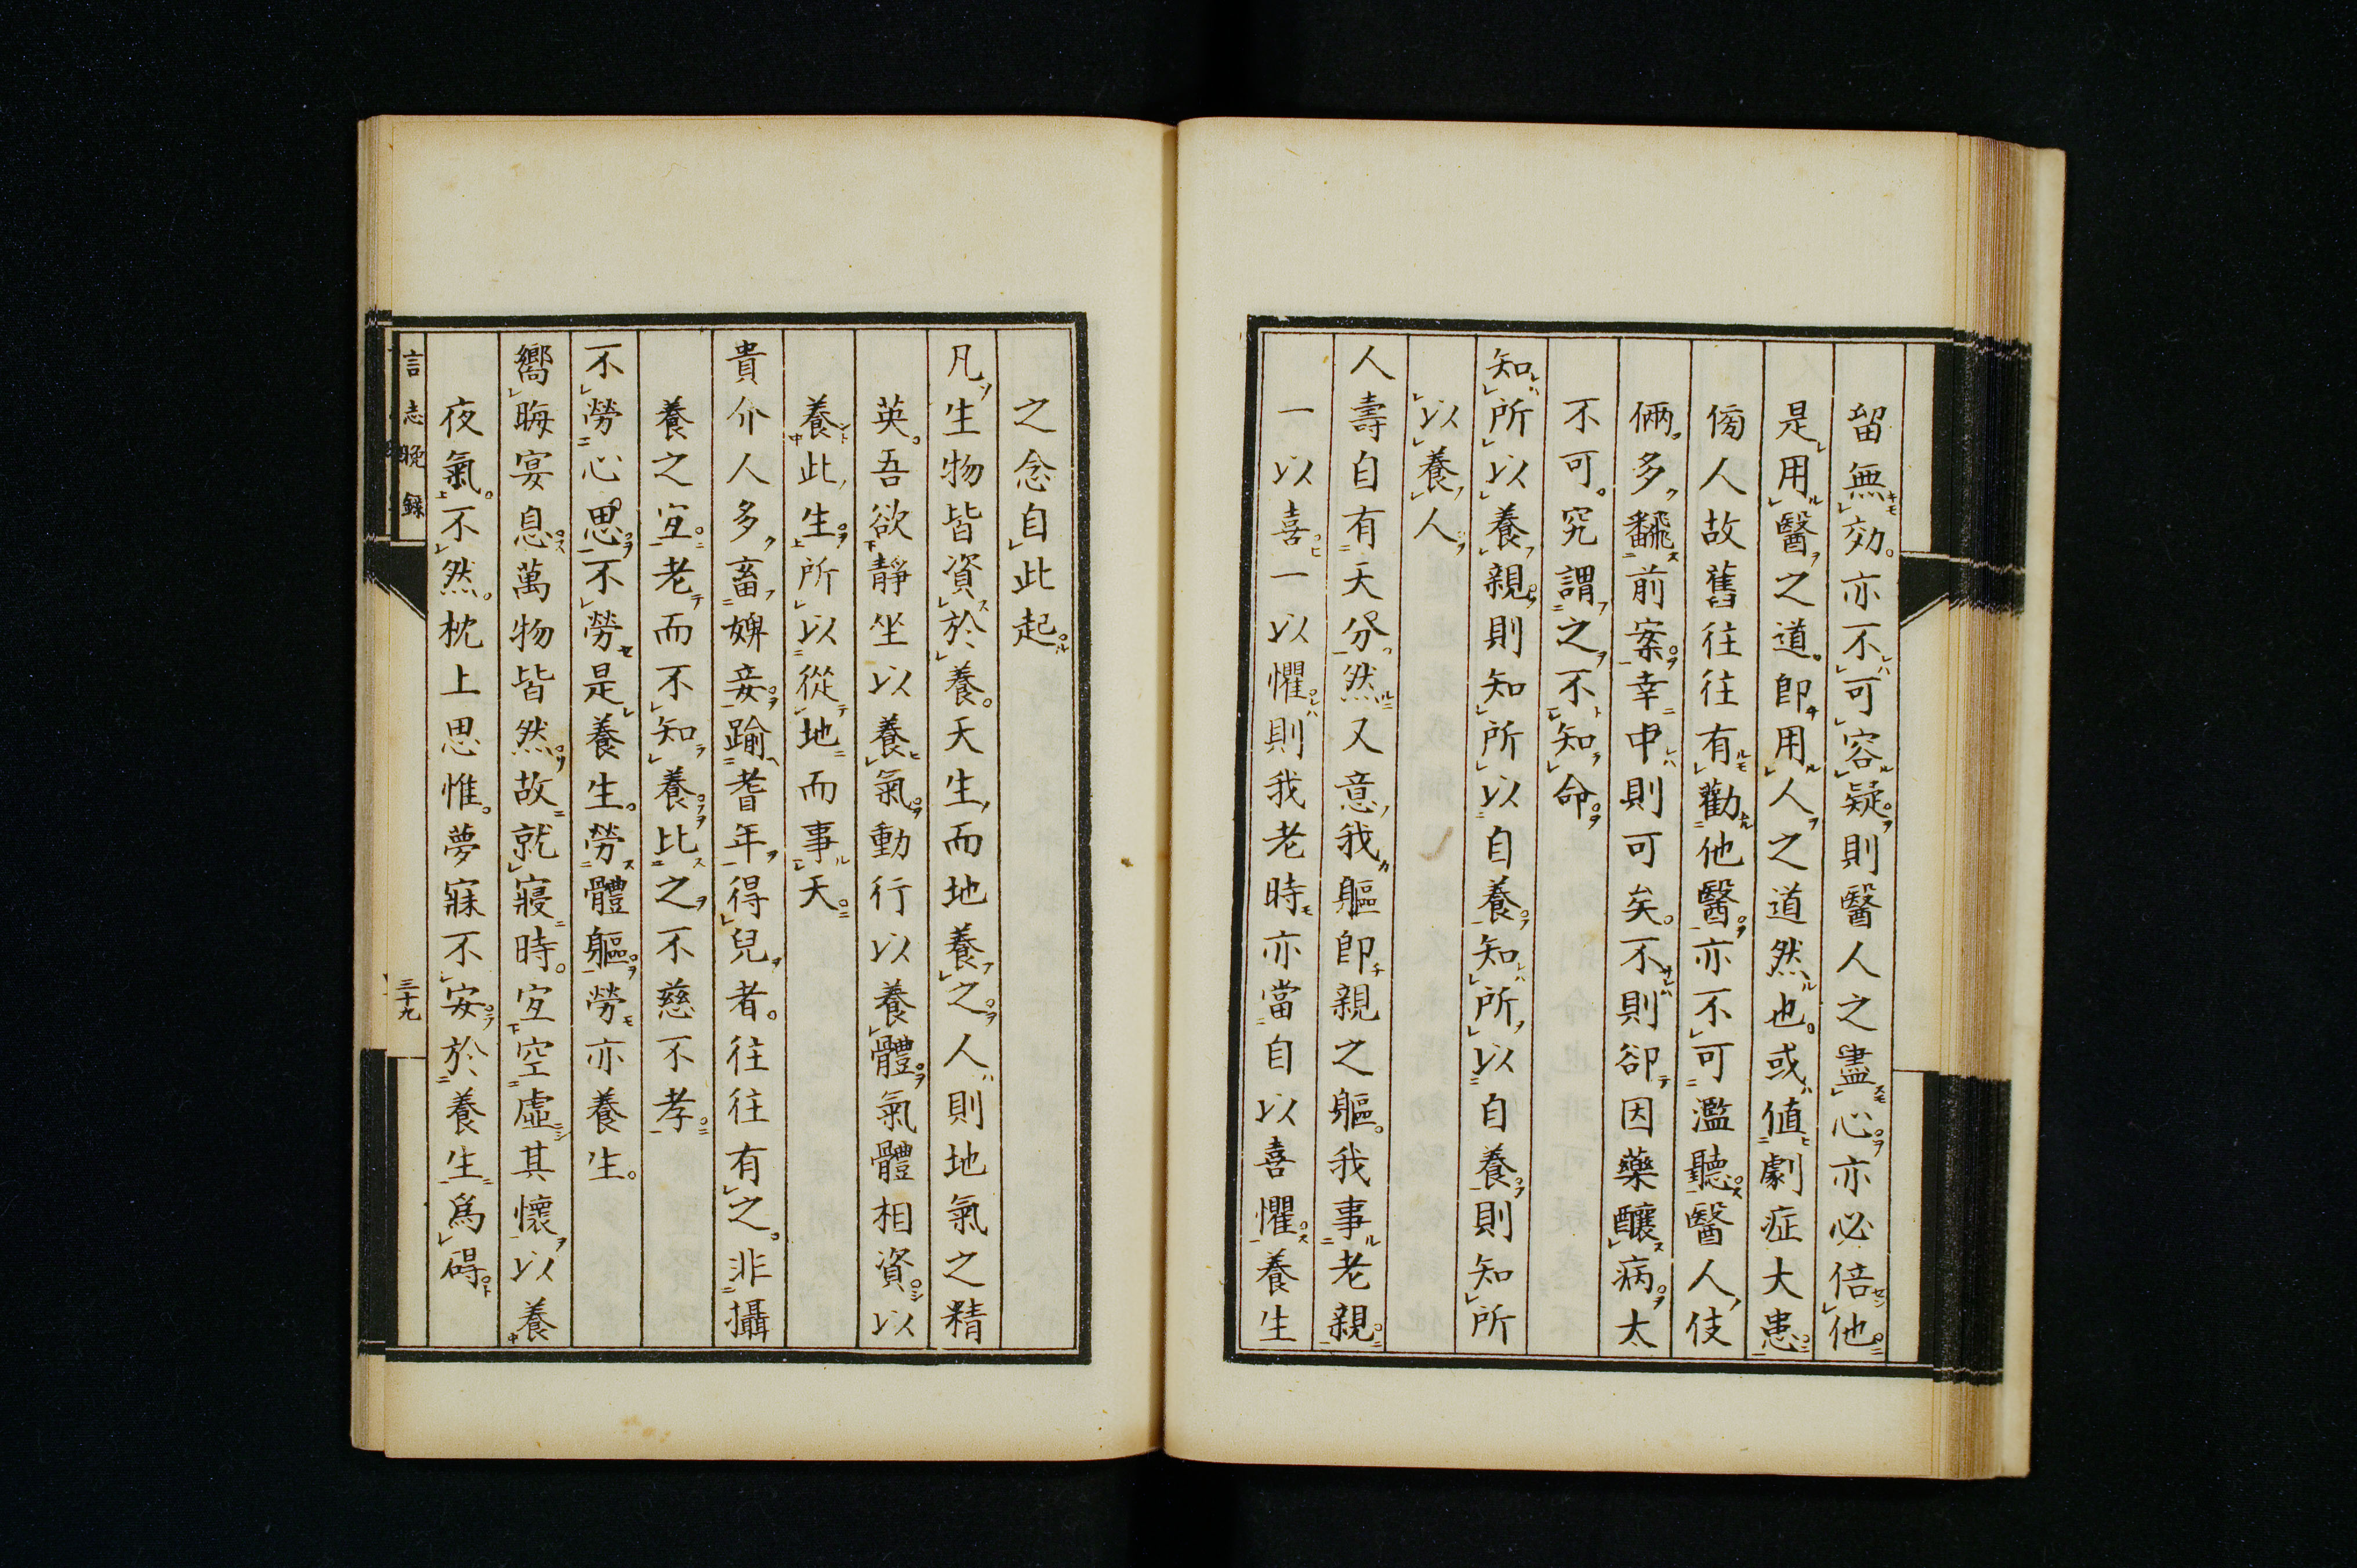 留無効。亦不可容疑。則醫人之盡心。亦必倍他。
是用醫之道。卽用人之道然也。或値劇症大患。
傍人故舊往往有勸他醫。亦不可濫聽。醫人伎
倆。多飜前案。幸中則可矣。不則卻因藥釀病。太
不可。究謂之不知命。
知所以養親。則知所以自養。知所以自養。則知所
以養人。
人壽自有天分。然又意我軀卽親之軀。我事老親。
一以喜。一以懼。則我老時亦當自以喜懼。養生
之念自此起。
凡生物皆資於養。天生而地養之。人則地氣之精
英。吾欲靜坐以養氣。動行以養體。氣體相資。以
養此生。所以從地而事天。
貴介人多畜婢妾。踰耆年得兒者。往往有之。非攝
養之宜。老而不知養。比之不慈不孝。
不勞心思。不勞是養生。勞體軀。勞亦養生。
嚮晦宴息。萬物皆然。故就寢時。宜空虛其懷以養
夜氣。不然。枕上思惟。夢寐不安。於養生爲碍。
言志晚錄
三十九